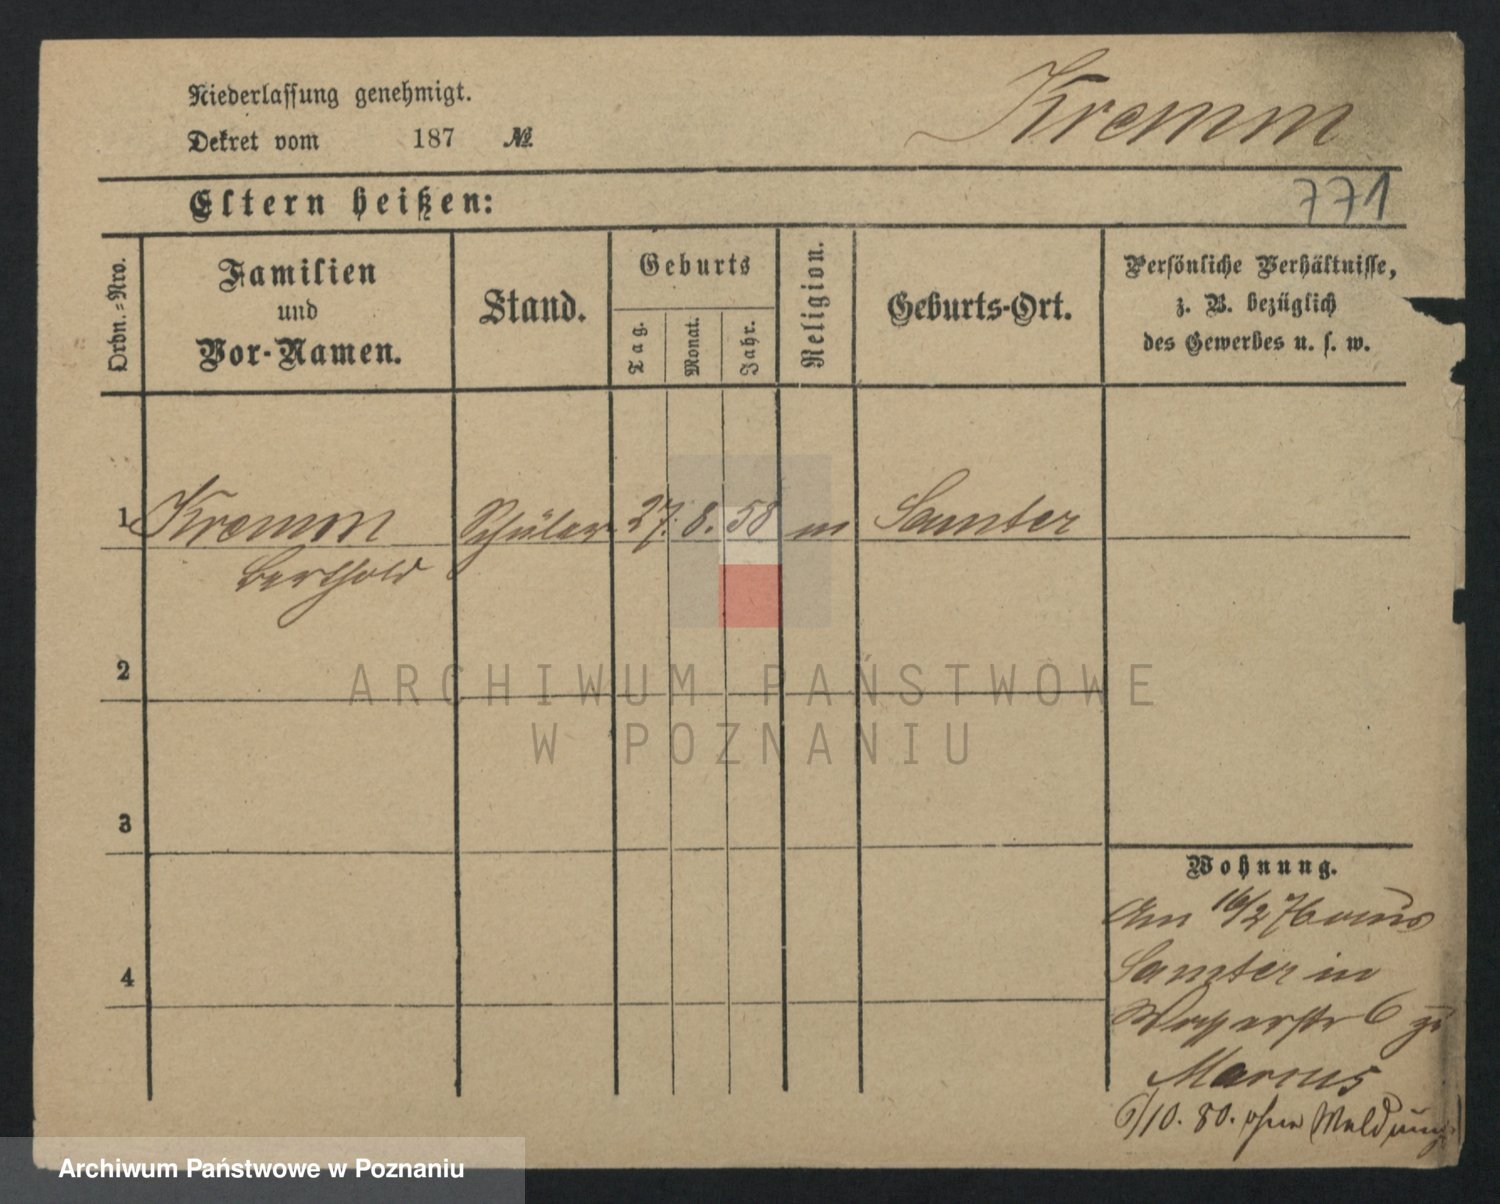 Niederlassung genehmigt.
Dekret vom 187 №
Kremm
771
Eltern heißen:
Ordn.-Nro.
Familien
und
Vor-Namen.
Stand.
Geburts
Tag.
Monat.
Jahr.
Religion.
Geburts-Ort.
Persönliche Verhältnisse,
z. B. bezüglich
des Gewerbes u. s. w.
1 Kremm Schüler 27. 8. 58 m Samter
Berthold
2
ARCHIWUM PAŃSTWOWE
W POZNANIU
3
Wohnung.
Am 16/2 76 aus
Samter in
4
Wasserstr 6 zu
Marcus
6/10. 80. ohne Meldung
Archiwum Państwowe w Poznaniu